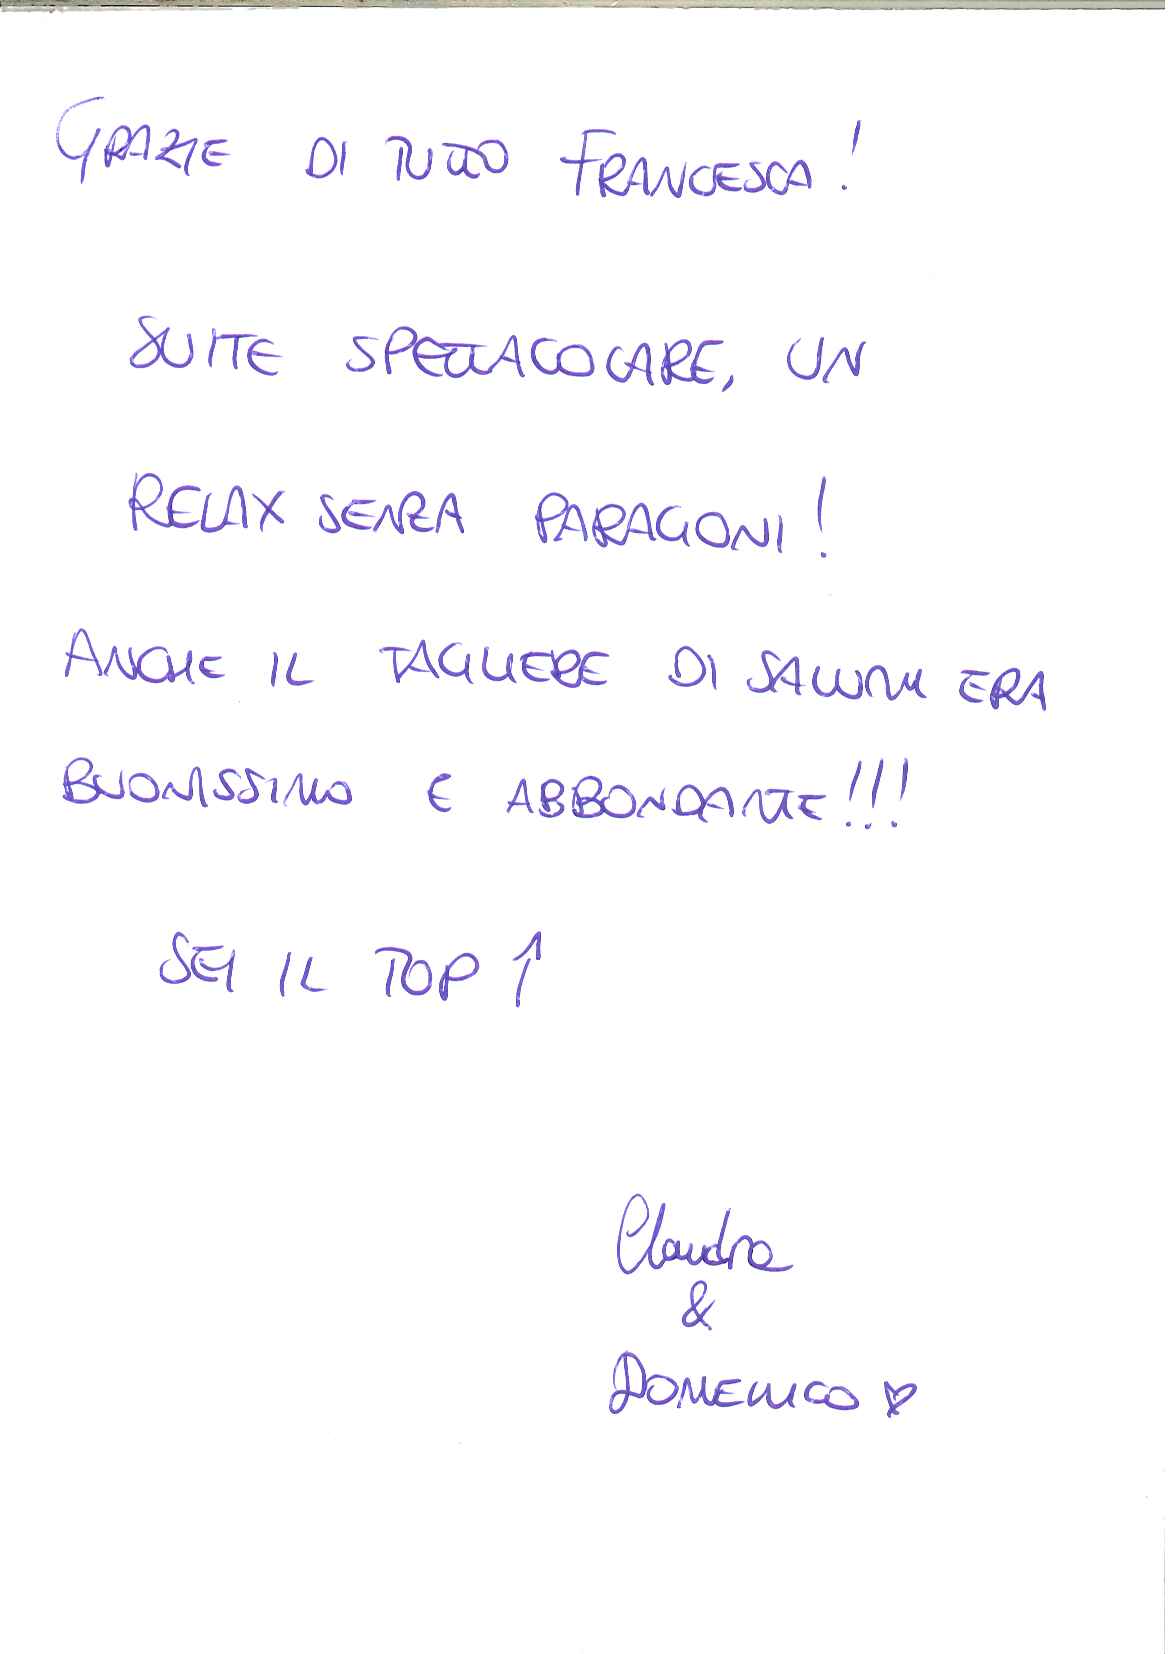 GRAZIE DI TUTTO FRANCESCA!
SUITE SPETTACOLARE, UN
RELAX SENZA PARAGONI!
ANCHE IL TAGLIERE DI SALUMI ERA
BUONISSIMO E ABBONDANTE!!!
SEI IL TOP ↑
Claudia
&
DOMENICO ♡